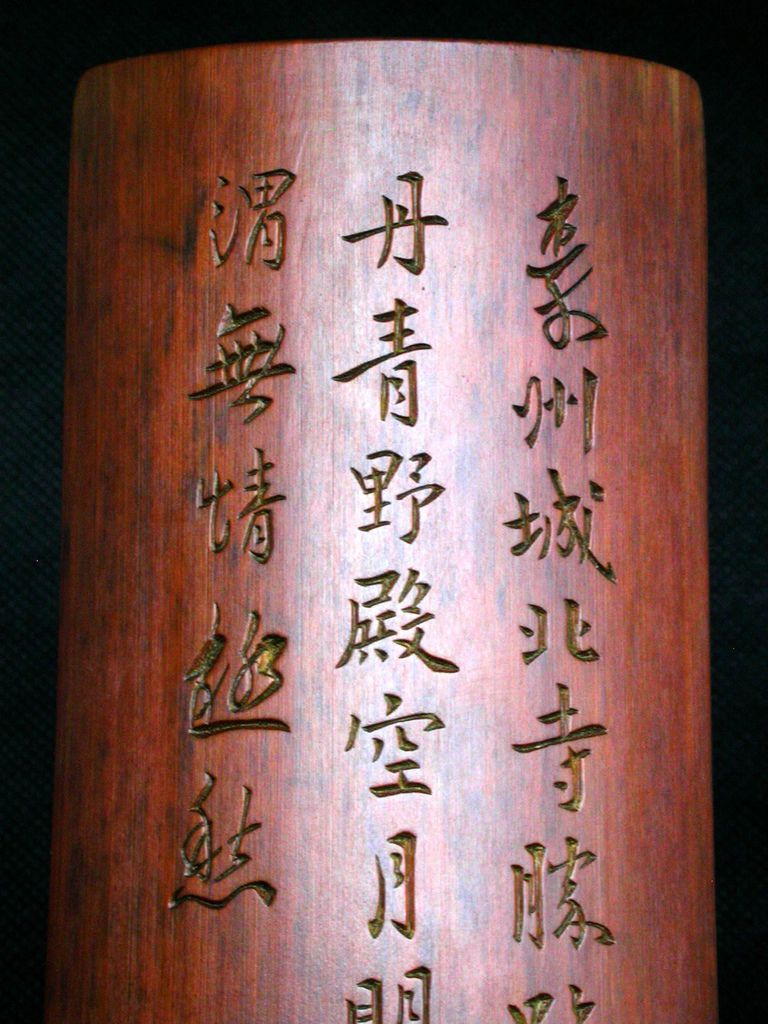 秦州城北寺勝跡
丹青野殿空月明
渭無情極愁